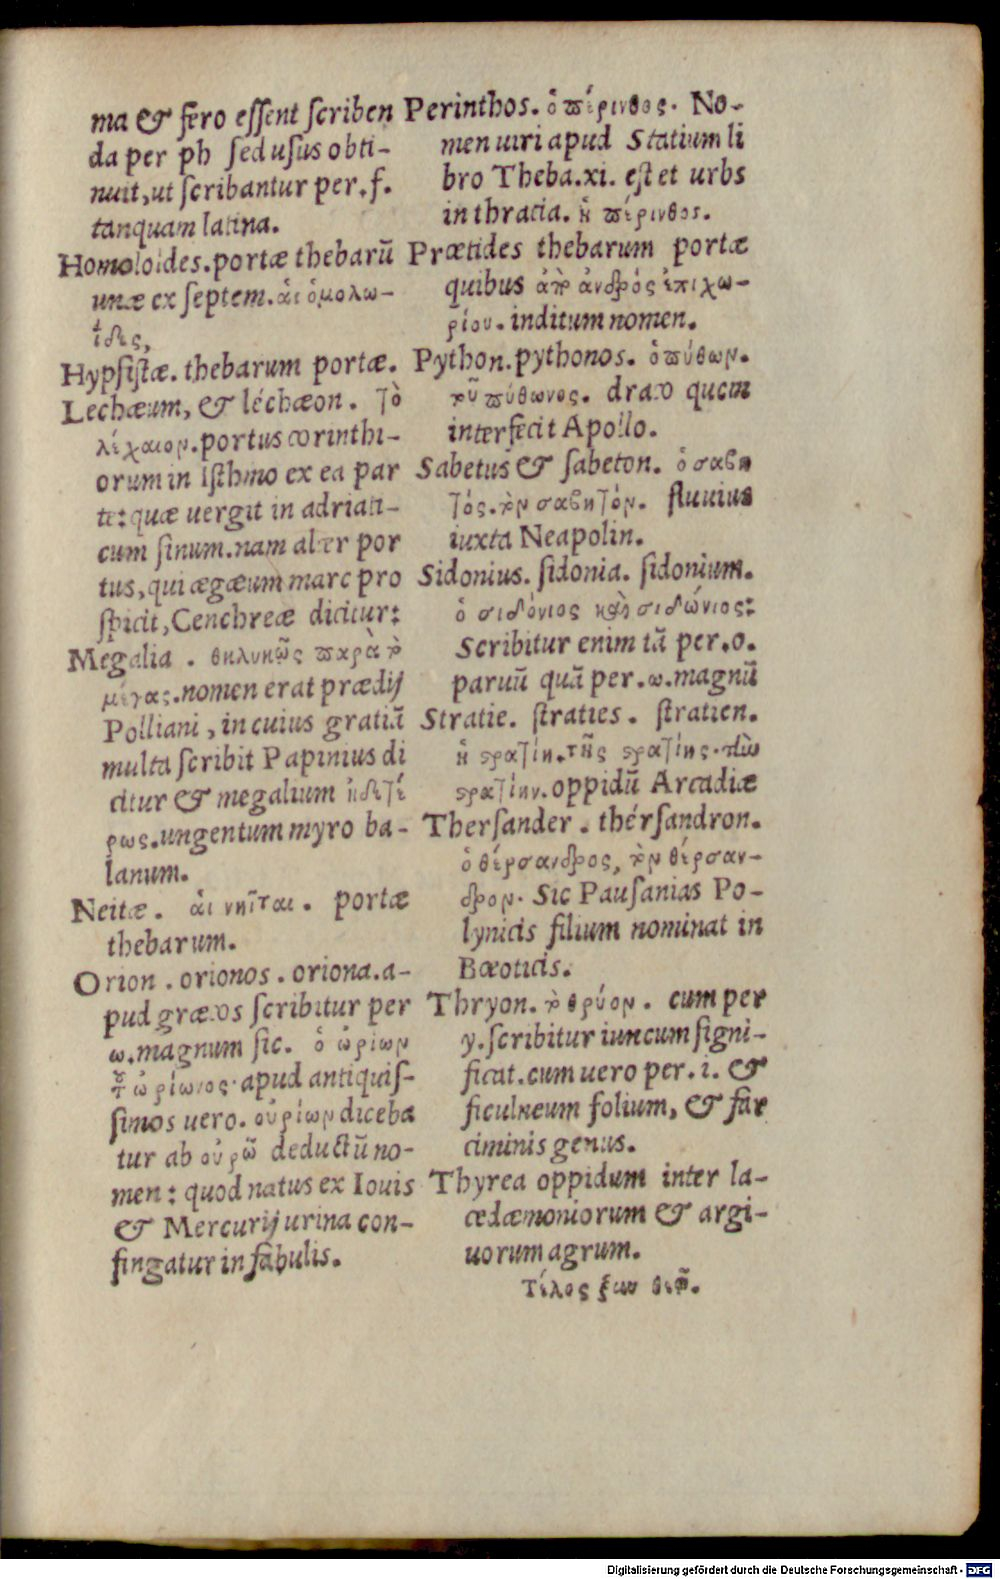 ma & fero essent scriben
da per ph sed usus obti-
nuit, ut scribantur per. f.
tanquam latina.
Homoloides. portæ thebarũ
unæ ex septem. ἁι ὁμολω-
ίδες,
Hypsistæ. thebarum portæ.
Lechæum, & léchæon. τὸ
λέχαιον. portus corinthi-
orum in Isthmo ex ea par
te: quæ uergit in adriati-
cum sinum. nam alter por
tus, qui ægæum mare pro
spicit, Cenchreæ dicitur:
Megalia . θηλυκῶς παρὰ τὸ
μέγας. nomen erat prædij
Polliani, in cuius gratiã
multa scribit Papinius di
citur & megalium ἡδετέ
ρως. ungentum myro ba-
lanum.
Neitæ . ἁι νηῖται . portæ
thebarum.
Orion . orionos . oriona. a-
pud græcos scribitur per
ω. magnum sic. ὁ ὠρίων
τοῦ ὠρίωνος. apud antiquis-
simos uero. οὐρίων diceba
tur ab οὐρῶ deductũ no-
men: quod natus ex Iouis
& Mercurij urina con-
fingatur in fabulis.
Perinthos. ὁ πέρινθος. No-
men uiri apud Statium li
bro Theba. xi. est et urbs
in thracia. ἡ πέρινθος.
Prætides thebarum portæ
quibus ἀπ' ἀνδρός ἐπιχω-
ρίου. inditum nomen.
Python. pythonos. ὁ πύθων.
τοῦ πύθωνος. draco quem
interfecit Apollo.
Sabetus & sabeton. ὁ σαβη
τός. τὸν σαβητόν. fluuius
iuxta Neapolin.
Sidonius. sidonia. sidonium.
ὁ σιδόνιος καὶ σιδώνιος:
Scribitur enim tã per. o.
paruũ quã per. ω. magnũ
Stratie. straties. stratien.
ἡ στρατίη. τῆς στρατίης. τὴν
στρατίην. oppidũ Arcadiæ
Thersander . thérsandron.
ὁ θέρσανδρος, τὸν θέρσαν-
δρον. Sic Pausanias Po-
lynicis filium nominat in
Bœoticis.
Thryon. τὸ θρύον . cum per
y. scribitur iuncum signi-
ficat. cum uero per. i. &
ficulneum folium, & far
ciminis genus.
Thyrea oppidum inter la-
cedæmoniorum & argi-
uorum agrum.
Τέλος ξὺν θεῷ.
Digitalisierung gefördert durch die Deutsche Forschungsgemeinschaft - DFG